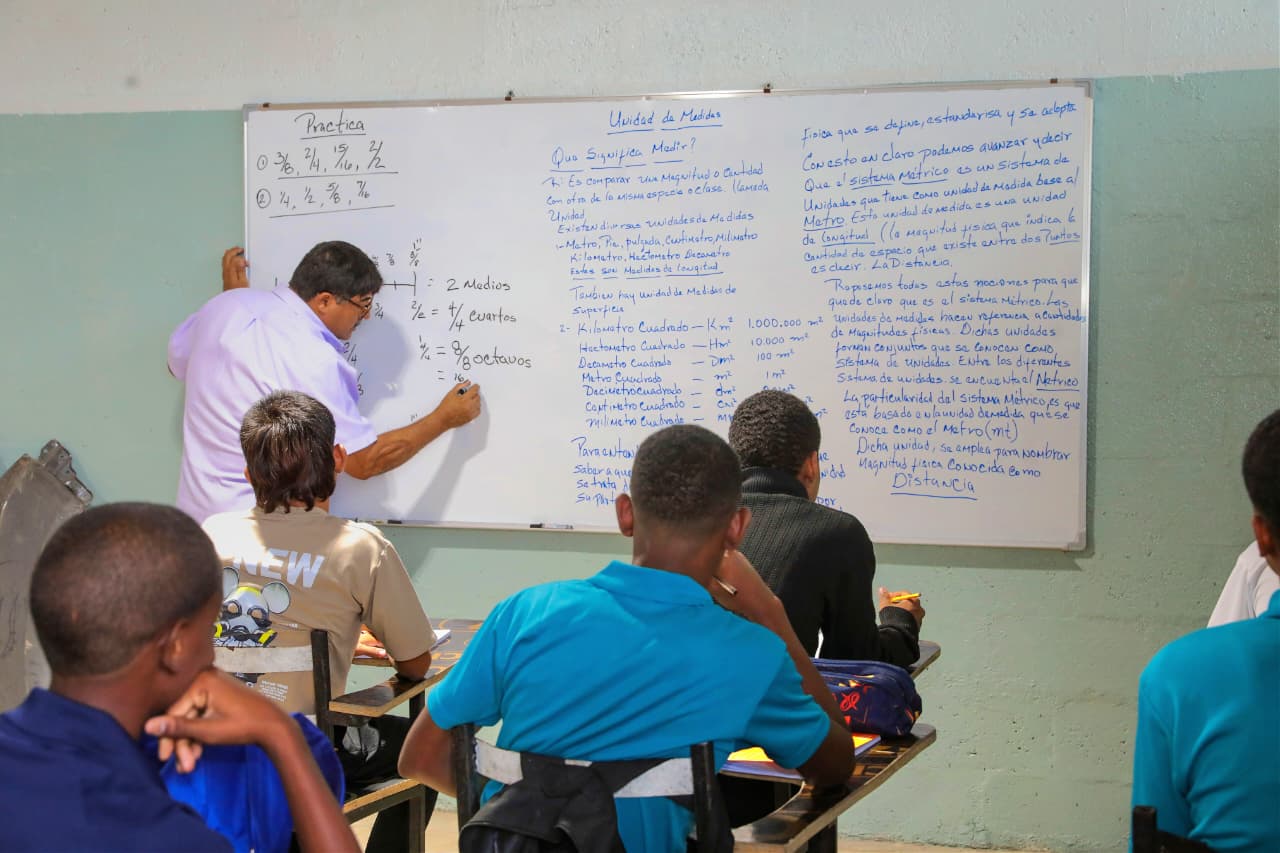 Practica
① 3/8, 2/4, 15/16, 2/2
② 1/4, 1/2, 5/8, 7/16
1"
7/8 8/8
= 2 Medios
3/4 2/2 = 4/4 cuartos
2/4
4/4 = 8/8 octavos
= 16
Unidad de Medidas
Que Significa Medir?
R: Es comparar una Magnitud o Cantidad
con otro de la misma especie o clase. Llamada
Unidad
Existen diversas Unidades de Medidas
1- Metro, Pie, pulgada, Centimetro, Milimetro
Kilometro, Hectometro Decametro
Estas son Medidas de longitud
Tambien hay unidad de Medidas de
superficie
2- Kilometro Cuadrado — Km² 1.000.000 m²
Hectometro Cuadrado — Hm² 10.000 m²
Decametro Cuadrado — Dm² 100 m²
Metro Cuadrado — m² 1 m²
Decimetro Cuadrado — dm²
Centimetro Cuadrado — Cm²
Milimetro Cuadrado —
Para
Saber a que
se trata
su
por
fisica que se define, estandarisa y se adopta
Con esto en claro podemos avanzar y decir
Que el sistema Métrico es un sistema de
Unidades que tiene como unidad de Medida base al
Metro Esta unidad de medida es una unidad
de longitud (la magnitud fisica que indica la
cantidad de espacio que existe entre dos Puntos
es decir. La Distancia.
Repasemos todas estas nociones para que
quede claro que es el sistema Métrico. Las
Unidades de medidas hacen referencia a cantidades
de Magnitudes fisicas. Dichas unidades
forman conjuntos que se conocen como
sistema de unidades. Entre los diferentes
Sistema de unidades. se encuenta el Metrico
La particularidad del sistema Métrico, es que
esta basado en la unidad de medida que se
conoce como el Metro (mt)
Dicha unidad, se emplea para Nombrar
Magnitud fisica Conocida como
Distancia
NEW